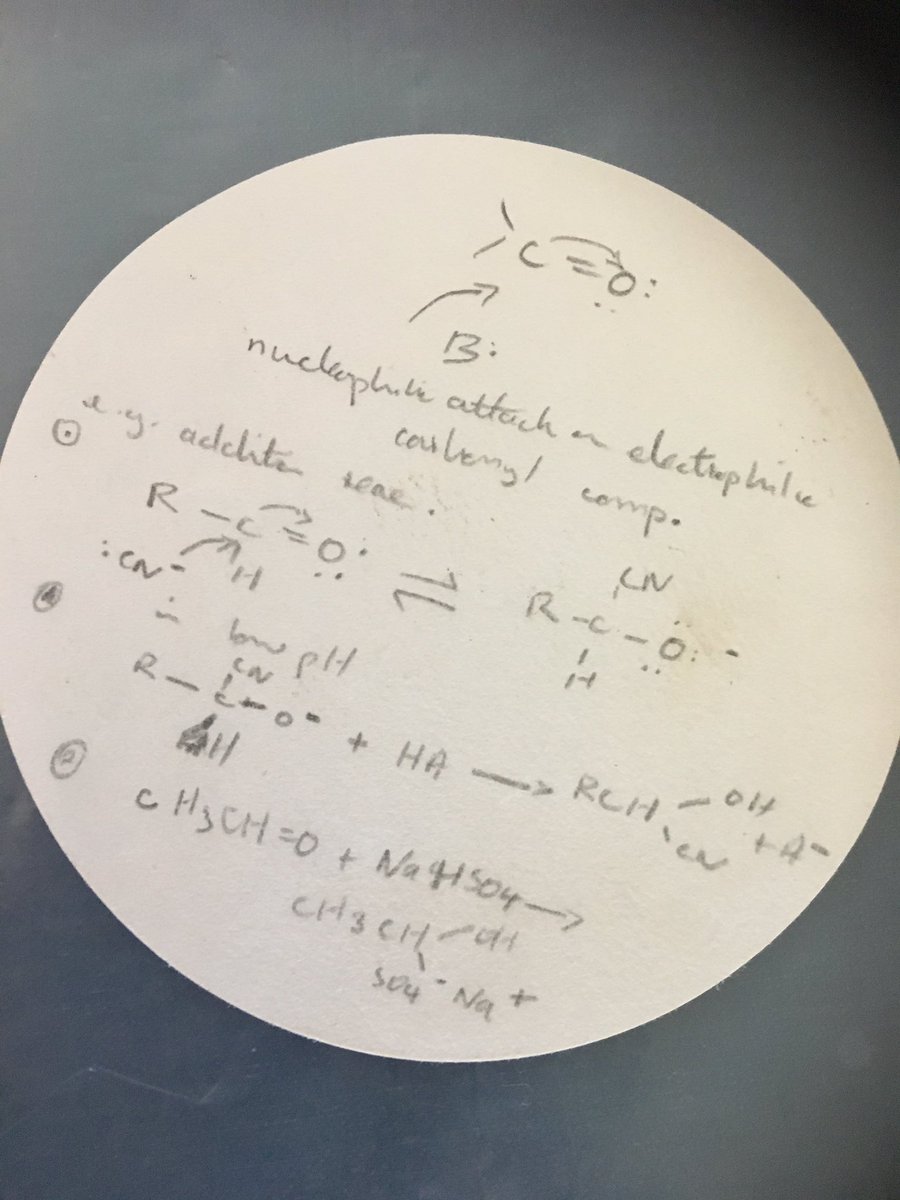 C=O:
B:
nucleophilic attack on electrophilic
carbonyl comp.
e.g. addition reac.
R-C=O:
:CN- H
⇌
CN
R-C-O:-
H
in low pH
CN
R-C-O- + HA → RCH-OH + A-
H CN
CH3CH=O + NaHSO4 →
CH3CH-OH
SO4- Na+